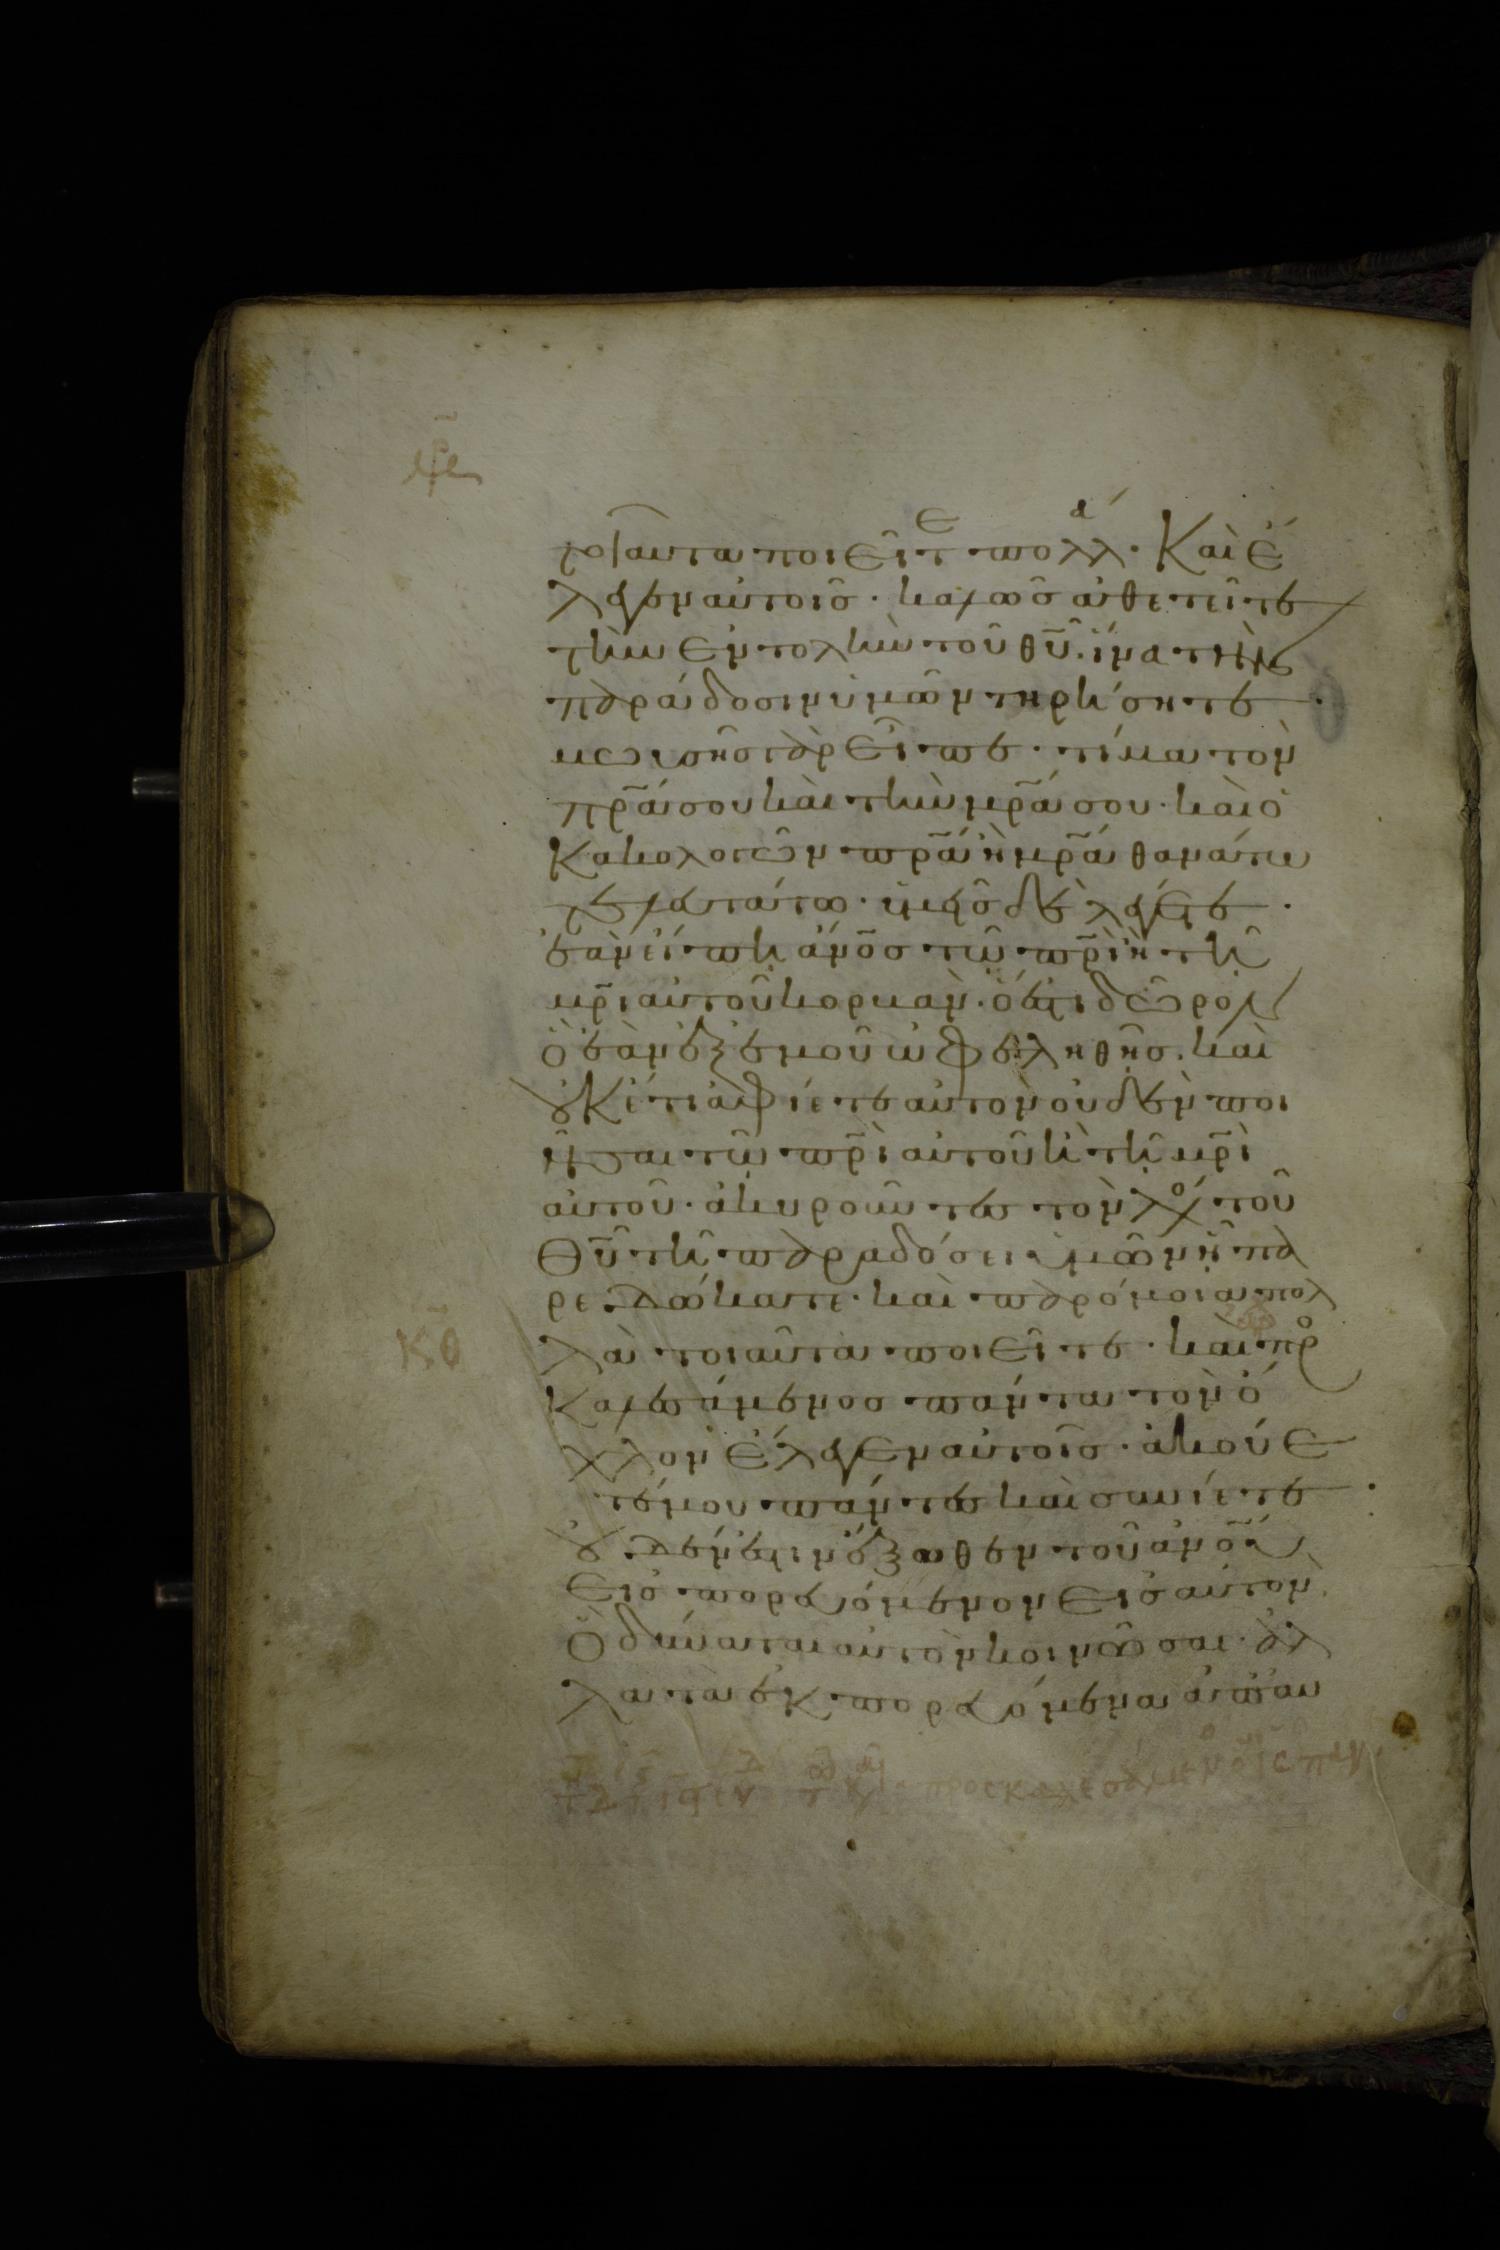 τοιαῦτα ποιεῖτε πολλά. Καὶ ἔ
λεγεν αὐτοῖς· καλῶς ἀθετεῖτε
τὴν ἐντολὴν τοῦ θυ̅. ἵνα τὴν
παράδοσιν ὑμῶν τηρήσητε·
μωϋσῆς γὰρ εἶπε· τίμα τὸν
πρ̅α σου καὶ τὴν μρ̅α σου· καὶ ὁ
κακολογῶν πρ̅α ἢ μρ̅α θανάτω
τελευτάτω· ὑμεῖς δὲ λέγετε·
ἐὰν εἴπη ἄνο̅ς τῷ πρ̅ι ἢ τῇ
μρ̅ι αὐτοῦ κορβᾶν· ὅ ἐστι δῶρον
ὃ ἐὰν ἐξ ἐμοῦ ὠφεληθῇς. καὶ
οὐκέτι ἀφίετε αὐτὸν οὐδὲν ποι
ῆσαι τῷ πρ̅ὶ αὐτοῦ ἢ τῇ μρ̅ὶ
αὐτοῦ· ἀκυροῦντες τὸν λόγ τοῦ
θυ̅ τῇ παραδόσει ὑμῶν ᾗ πα
ρεδώκατε· καὶ παρόμοια πολ
λὰ τοιαῦτα ποιεῖτε· καὶ προ
καλεσάμενος πάντα τὸν ὄ
χλον ἔλεγεν αὐτοῖς· ἀκούε
τέ μου πάντες καὶ συνίετε·
οὐδέν ἐστιν ἔξωθεν τοῦ ἀνο̅υ
εἰσπορευόμενον εἰς αὐτὸν
ὃ δύναται αὐτὸν κοινῶσαι· ἀλ
λὰ τὰ ἐκπορευόμενα ἀπ' αὐ
κθ̅